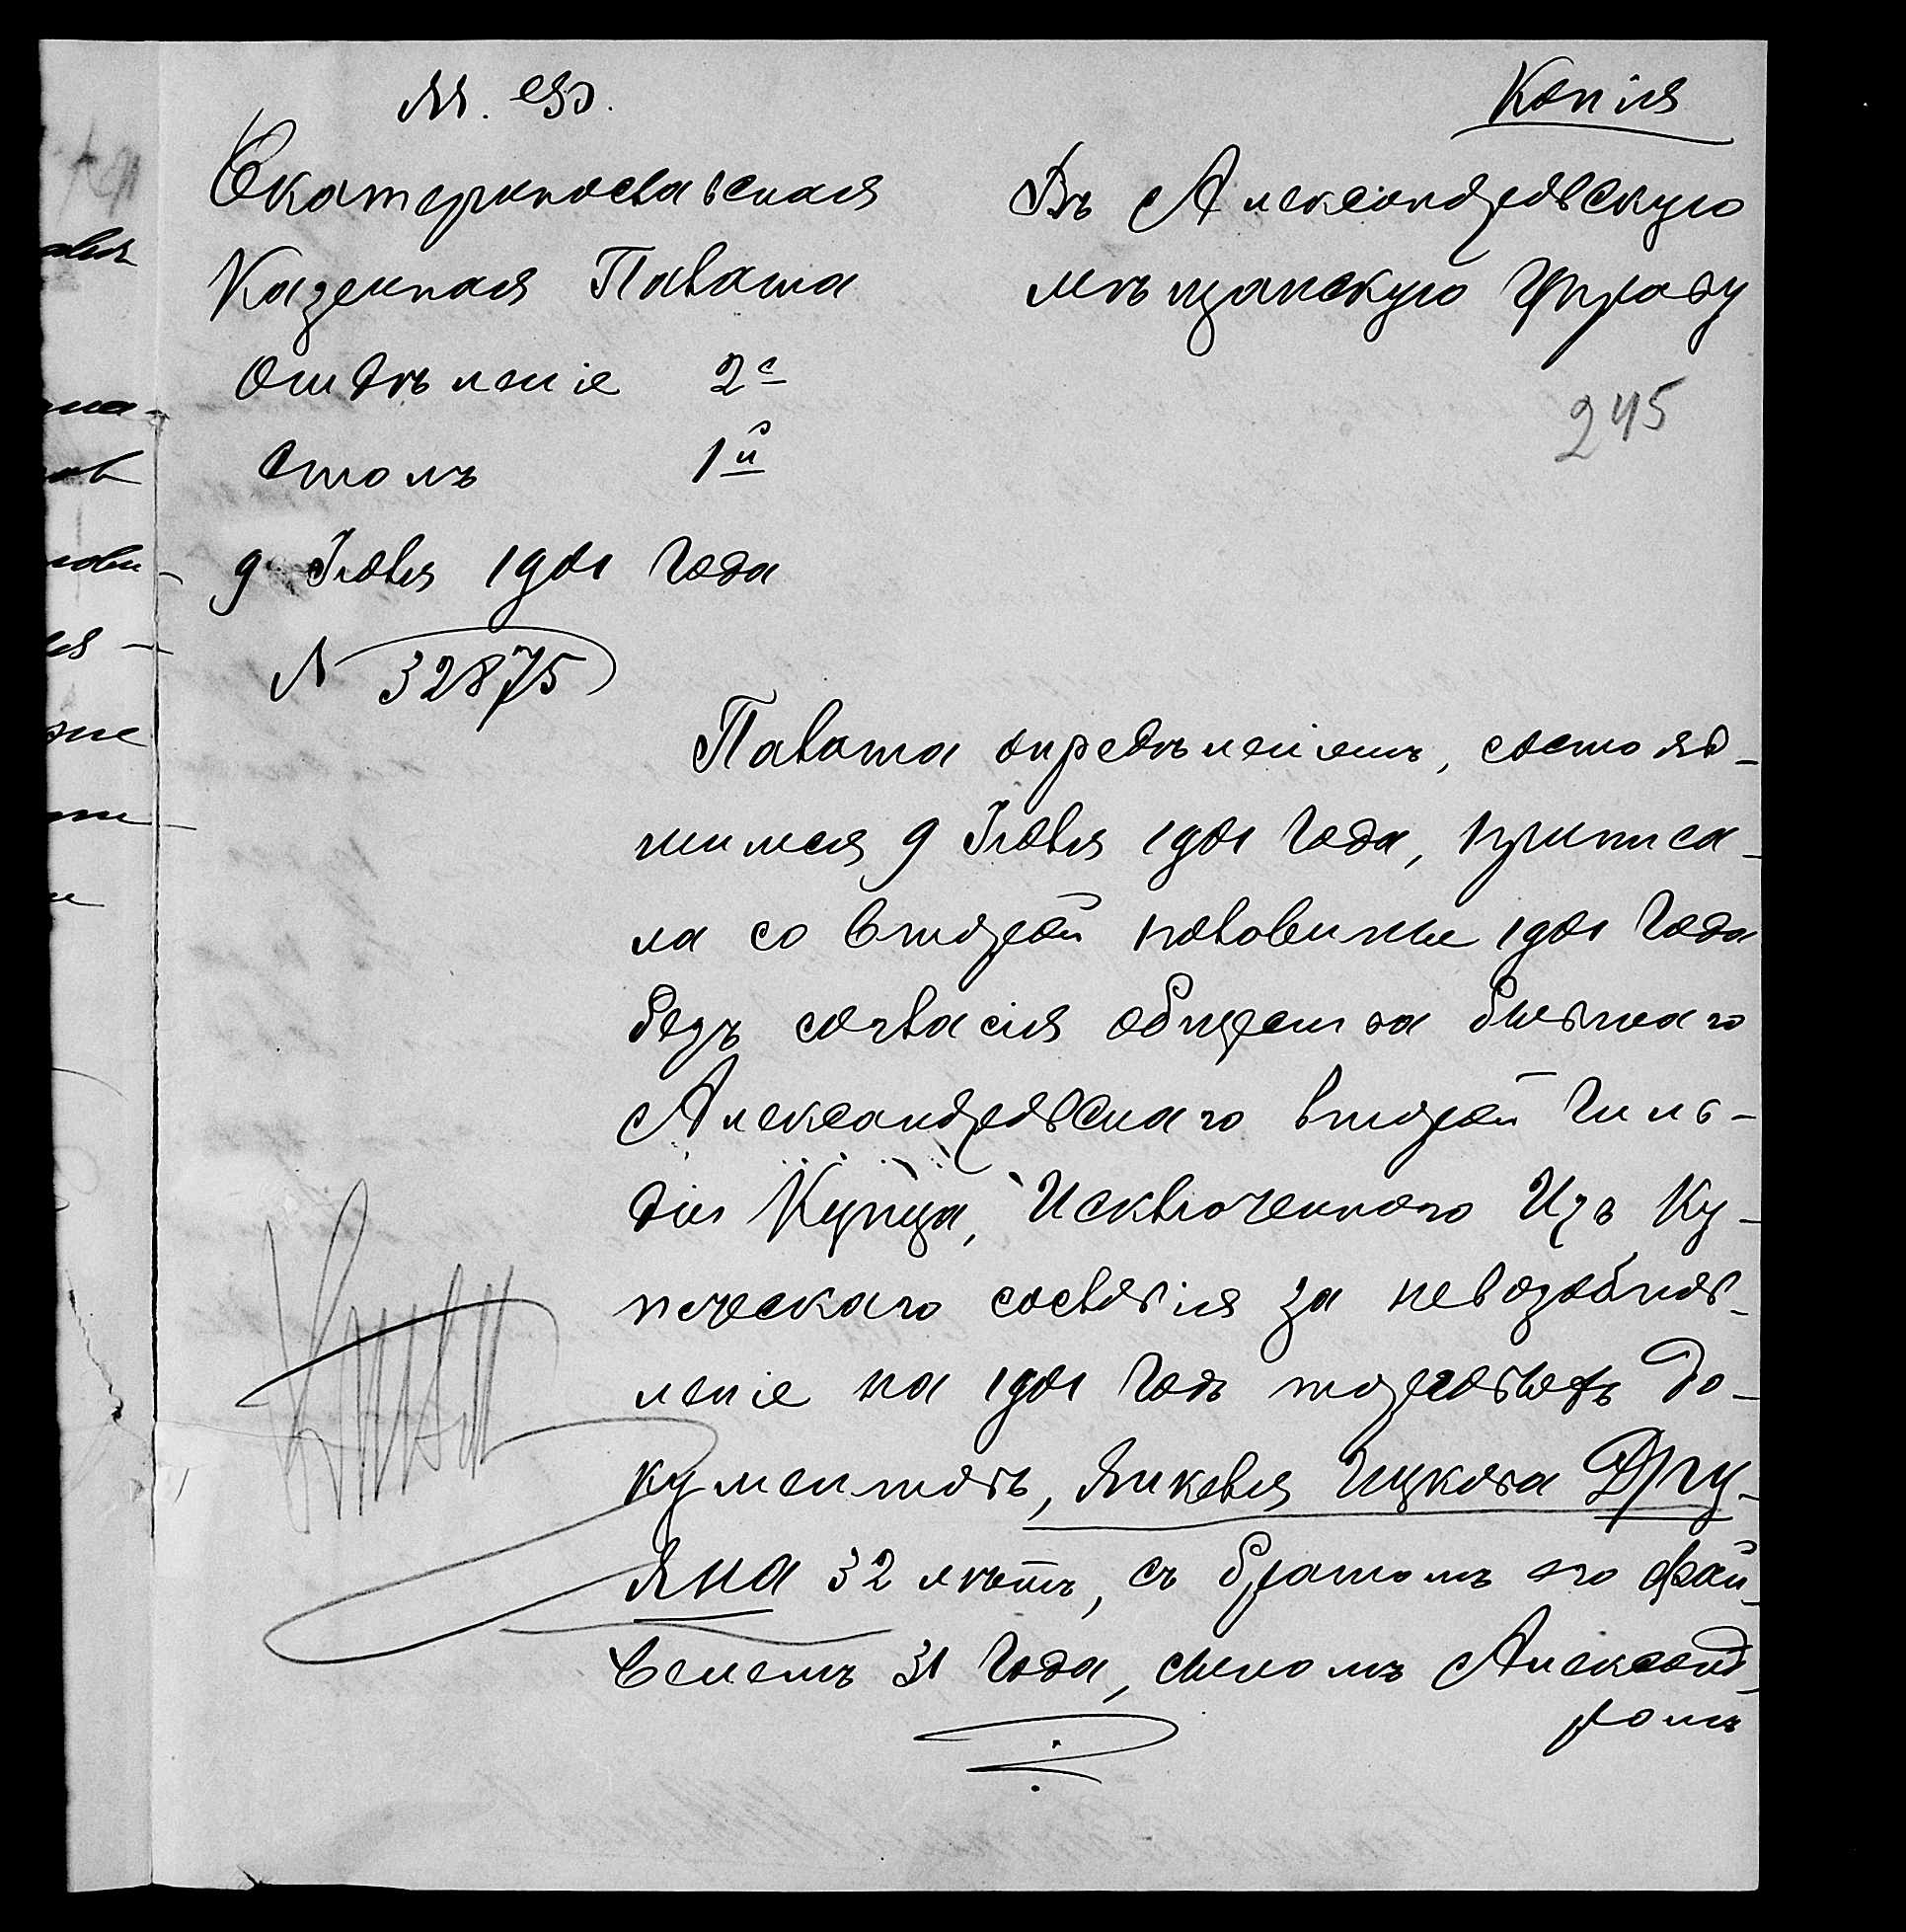 М. Ф.
Копія
Екатеринославская
Казенная Палата
Отдѣленіе 2е
Столъ 1й
9 Іюля 1901 года
N 32875
Въ Александровскую
мѣщанскую Управу
245
Палата опредѣленіемъ, состояв-
шимся 9 Іюля 1901 года, приписа-
ла со второй половины 1901 года
безъ согласія общества бывшаго
Александровскаго второй гиль-
діи Купца, Исключеннаго Изъ Ку-
печескаго сословія за невозобнов-
леніе на 1901 годъ торговыхъ до-
кументовъ, Янкеля Ицкова Дру-
яна 32 лѣтъ, съ братомъ его Фай-
велемъ 31 года, сыномъ Александ-
ромъ